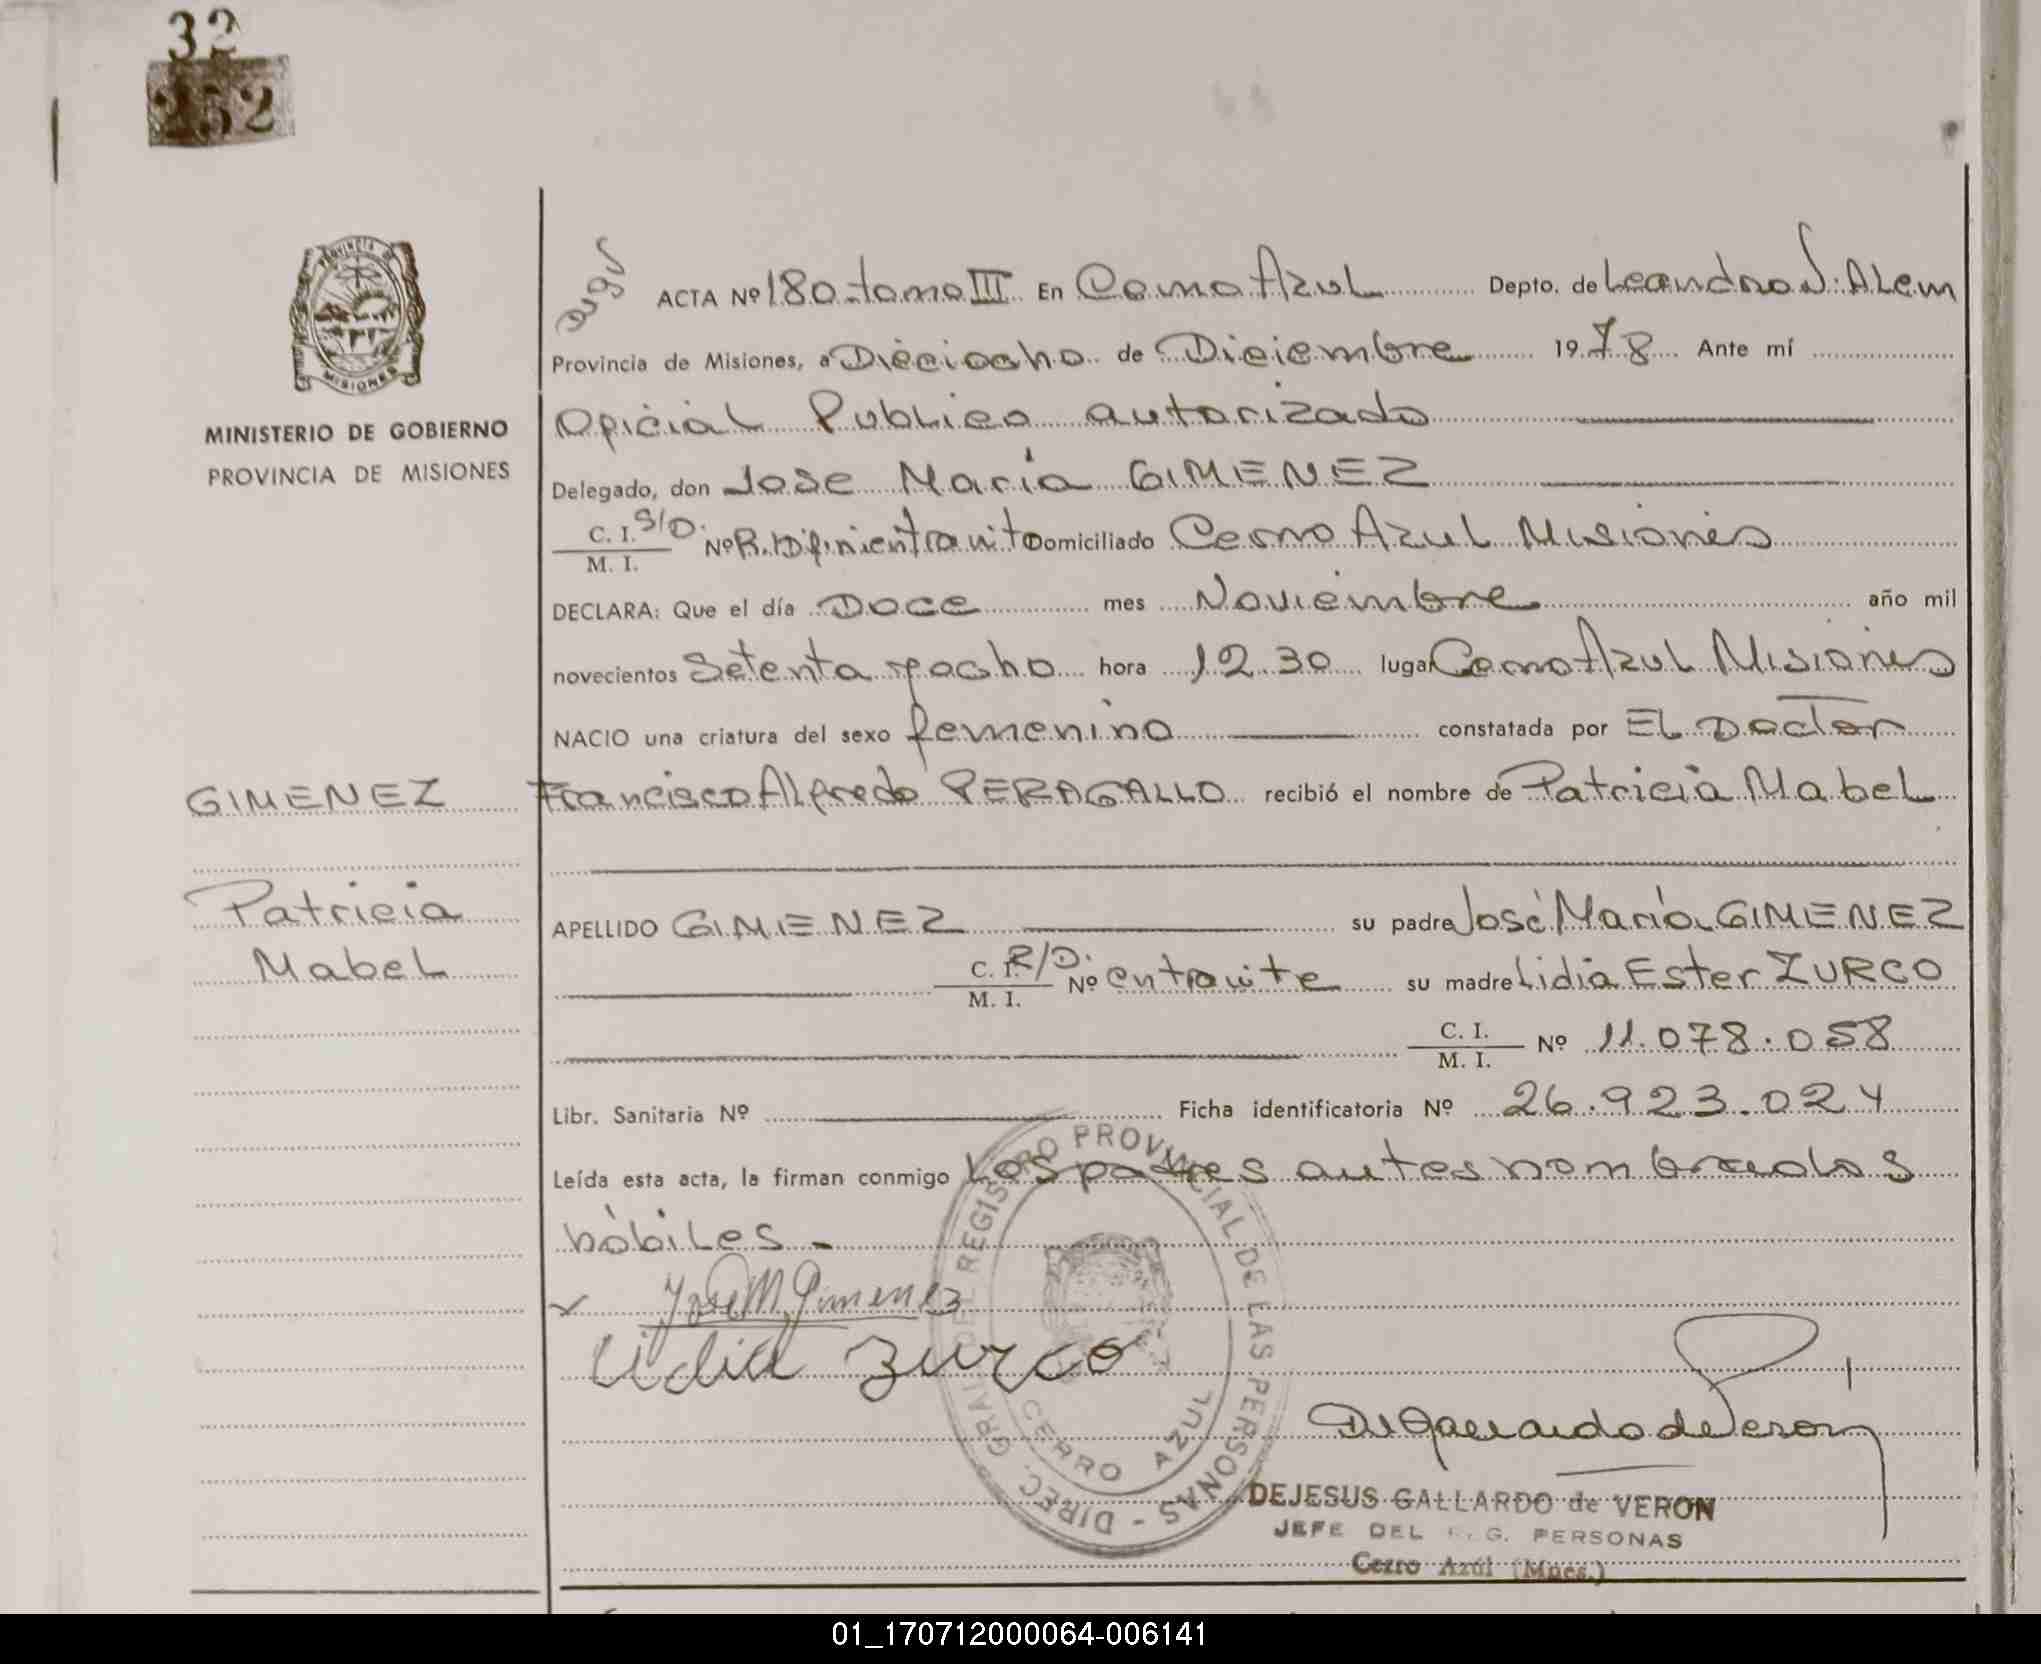 32
252
PROVINCIA DE
MISIONES
MINISTERIO DE GOBIERNO
PROVINCIA DE MISIONES
ACTA Nº 180 tomo III En Cerro Azul Depto. de Leandro N. ALem
Provincia de Misiones, a Dieciocho de Diciembre 1978 Ante mí
Oficial Publico autorizado
Delegado, don Jose María GIMENEZ
C. I. S/D.
M. I.
Nº R. D. Domiciliado Cerro Azul Misiones
DECLARA: Que el día Doce mes Noviembre año mil
novecientos Setenta y ocho hora 12 30 lugar Cerro Azul Misiones
NACIO una criatura del sexo femenino constatada por EL Doctor
GIMENEZ
Francisco Alfredo PERAGALLO recibió el nombre de Patricia Mabel
Patricia
Mabel
APELLIDO GIMENEZ su padre José María GIMENEZ
C. I. R/D.
M. I.
Nº entramite su madre Lidia Ester ZURCO
C. I.
M. I.
Nº 11.078.058
Libr. Sanitaria Nº Ficha identificatoria Nº 26.923.024
Leída esta acta, la firman conmigo Los padres antes nombrados
hábiles -
José M. Gimenez
Lidia Zurco
DIREC. GRAL. DEL REGISTRO PROVINCIAL DE LAS PERSONAS -
CERRO AZUL
D. Gallardo de Veron
DEJESUS GALLARDO de VERON
JEFE DEL G. PERSONAS
Cerro Azúl (Mnes.)
01_170712000064-006141